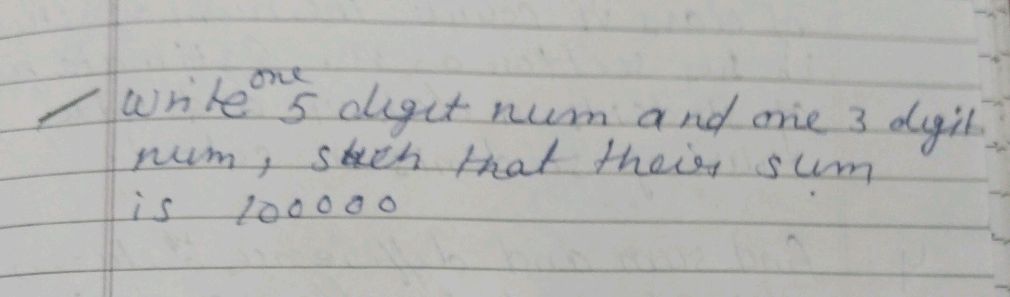 write one 5 digit num and one 3 digit
num, such that their sum
is 100000